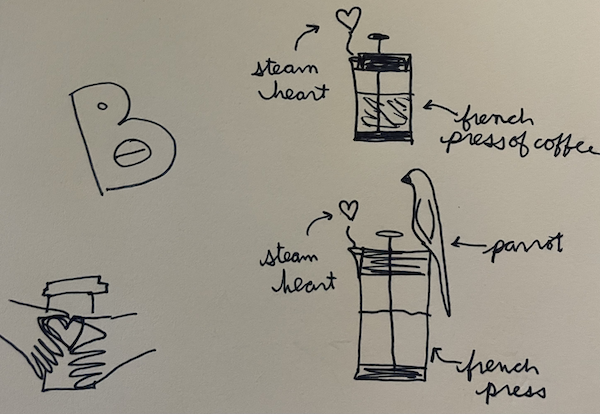 steam
heart
french
press of coffee
B
steam
heart
parrot
french
press